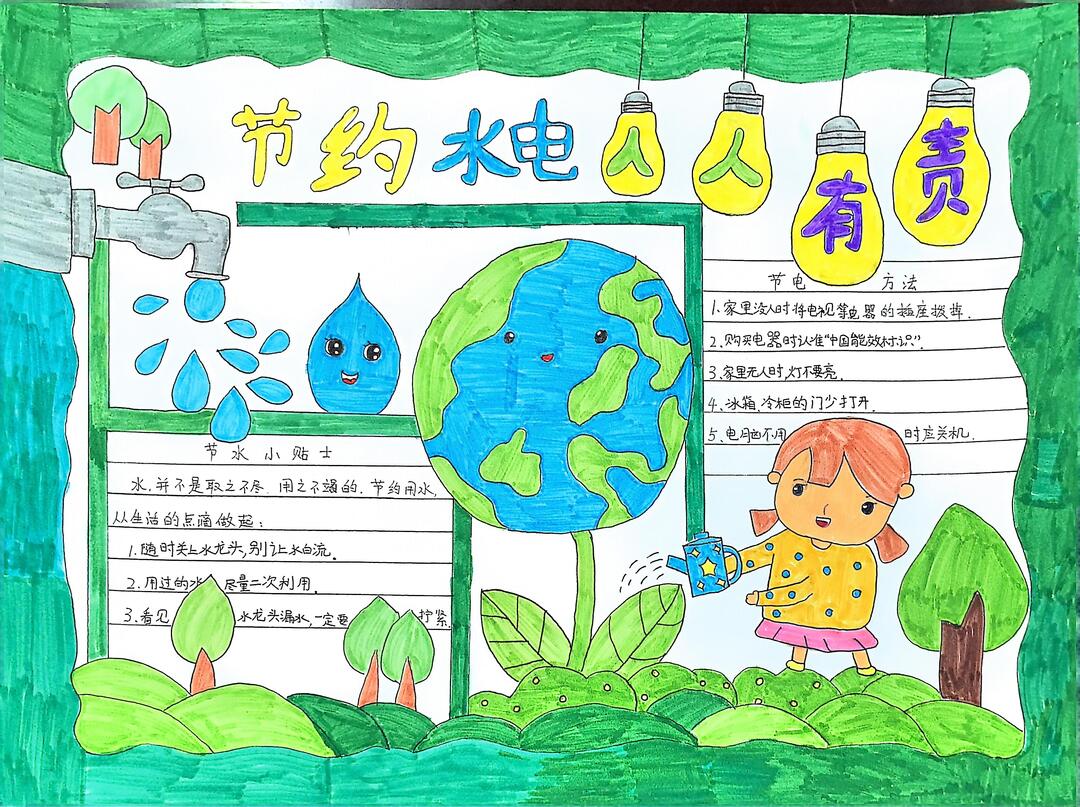 节约水电人人有责
节水小贴士
水,并不是取之不尽.用之不竭的.节约用水,
从生活的点滴做起:
1.随时关上水龙头,别让水白流.
2.用过的水 尽量二次利用.
3.看见 水龙头漏水,一定要 拧紧.
节电 方法
1.家里没人时将电视等电器的插座拨掉.
2.购买电器时认准“中国能效标识”.
3.家里无人时,灯不要亮.
4、冰箱.冷柜的门少打开.
5、电脑不用 时应关机.